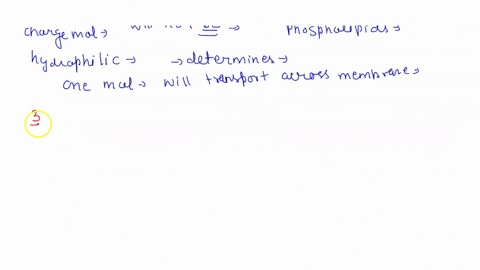 charge mol → will not → Phospholipids →
hydrophilic → → determines →
one mol → will transport across membrane →
3